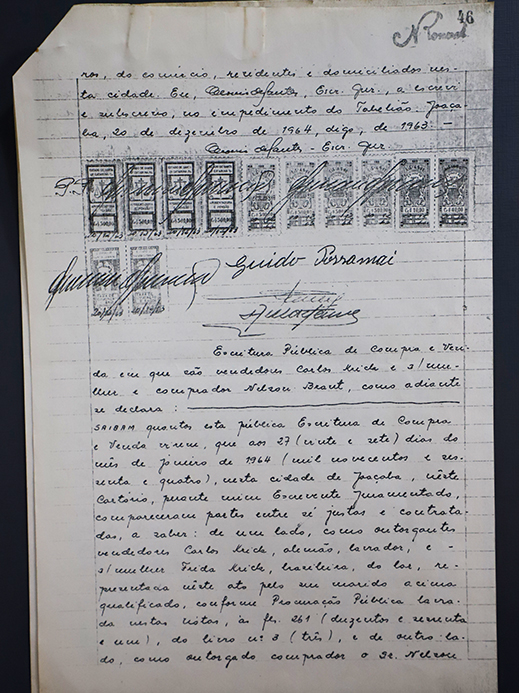 46
ros, do comércio, residentes e domiciliados nes-
ta cidade. Eu, Escr. Jur., a escrevi
e subscrevo, no impedimento do Tabelião. Joaça-
ba, 20 de dezembro de 1964, digo, de 1963. —
- Escr. Jur.
Guido Possamai
Escritura Pública de Compra e Ven-
da em que são vendedores Carlos Krick e s/mu-
lher e comprador Nelson Beaut, como adiante
se declara :
SAIBAM quantos esta pública Escritura de Compra
e Venda virem, que aos 27 (vinte e sete) dias do
mês de janeiro de 1964 (mil novecentos e ses-
senta e quatro), nesta cidade de Joaçaba, nêste
Cartório, perante mim Escrevente Juramentado,
compareceram partes entre si justas e contrata-
das, a saber: de um lado, como outorgantes
vendedores Carlos Krick, alemão, lavrador, e -
s/mulher Frida Krick, brasileira, do lar, re-
presentada nêste ato pelo seu marido acima
qualificado, conforme Procuração Pública lavra-
da nestas notas, às fls. 261 (duzentos e sessenta
e um), do livro nº 3 (três), e de outro la-
do, como outorgado comprador o Sr. Nelson